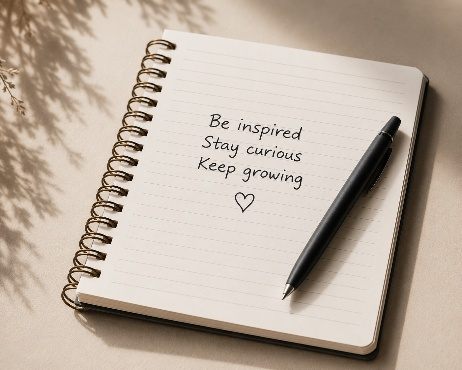 Be inspired
Stay curious
Keep growing
♡